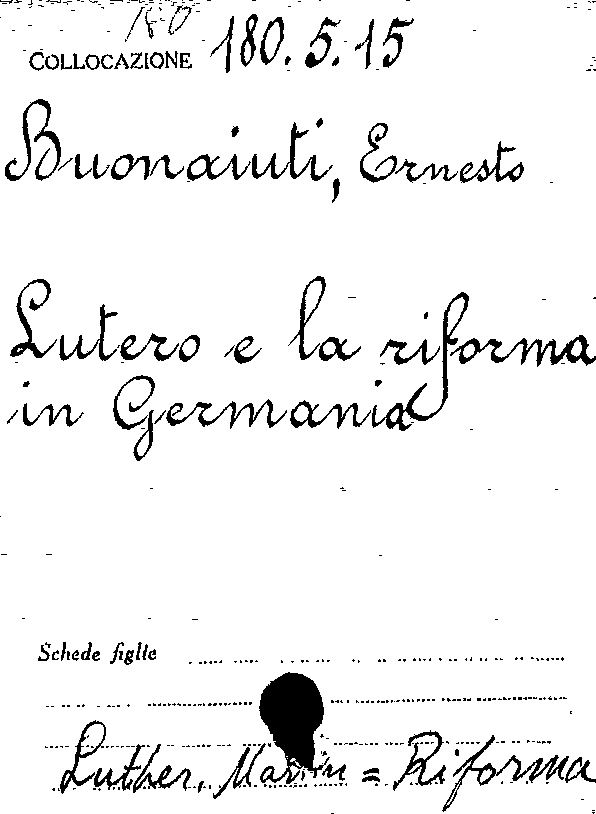 180
COLLOCAZIONE 180.5.15
Buonaiuti, Ernesto
Lutero e la riforma
in Germania
Schede figlie
Luther, Martin = Riforma